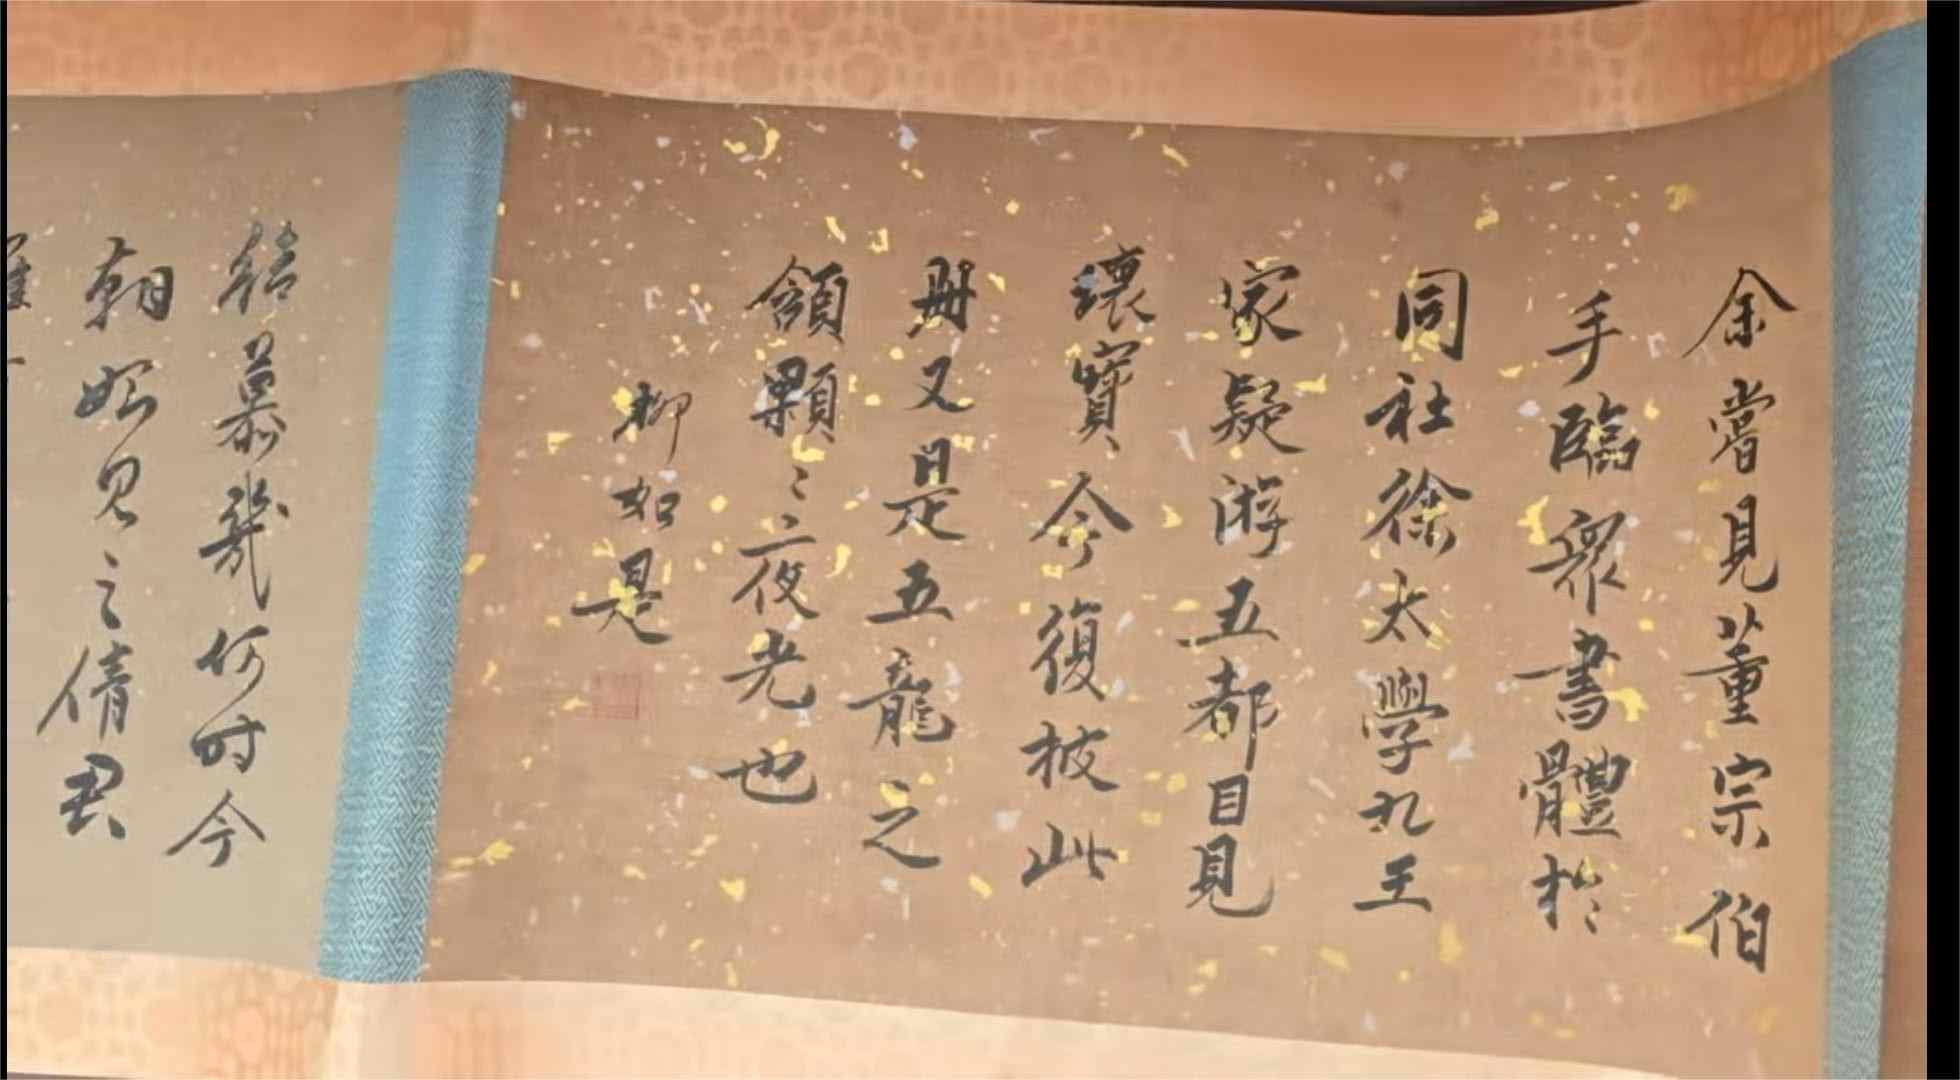 余嘗見董宗伯
手臨眾書體於
同社徐太學九玉
家疑游五都目見
瓌寶今復披此
冊又是五龍之
頷顆〻夜光也
柳如是
慕幾何时今
朝始見之倩君